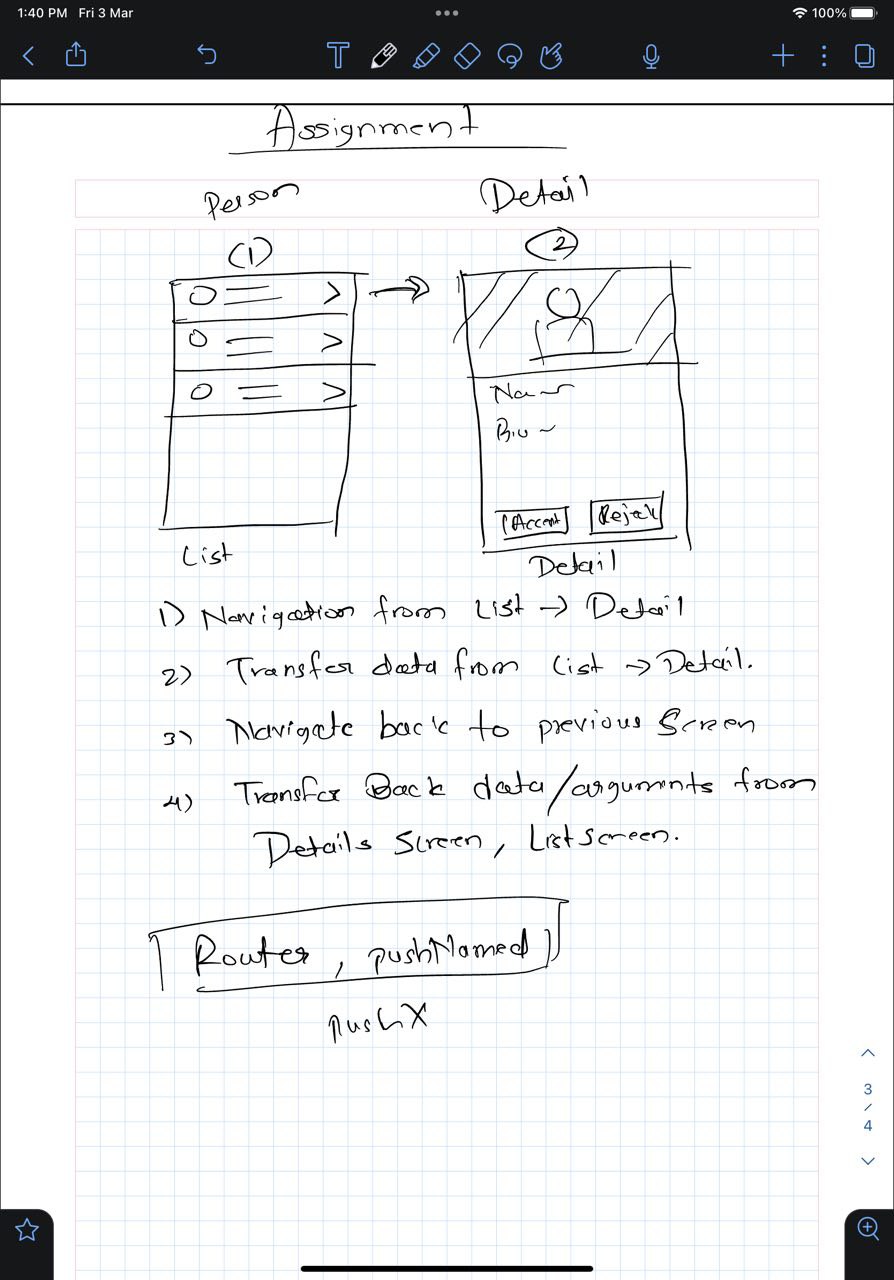 1:40 PM Fri 3 Mar
100%
Assignment
Person
Detail
(1)
(2)
Bio
Accept
Reject
List
Detail
1) Navigation from List → Detail
2) Transfer data from List → Detail.
3) Navigate back to previous Screen
4) Transfer Back data/arguments from
Details Screen, Listscreen.
Router, pushNamed
push X
3
/
4